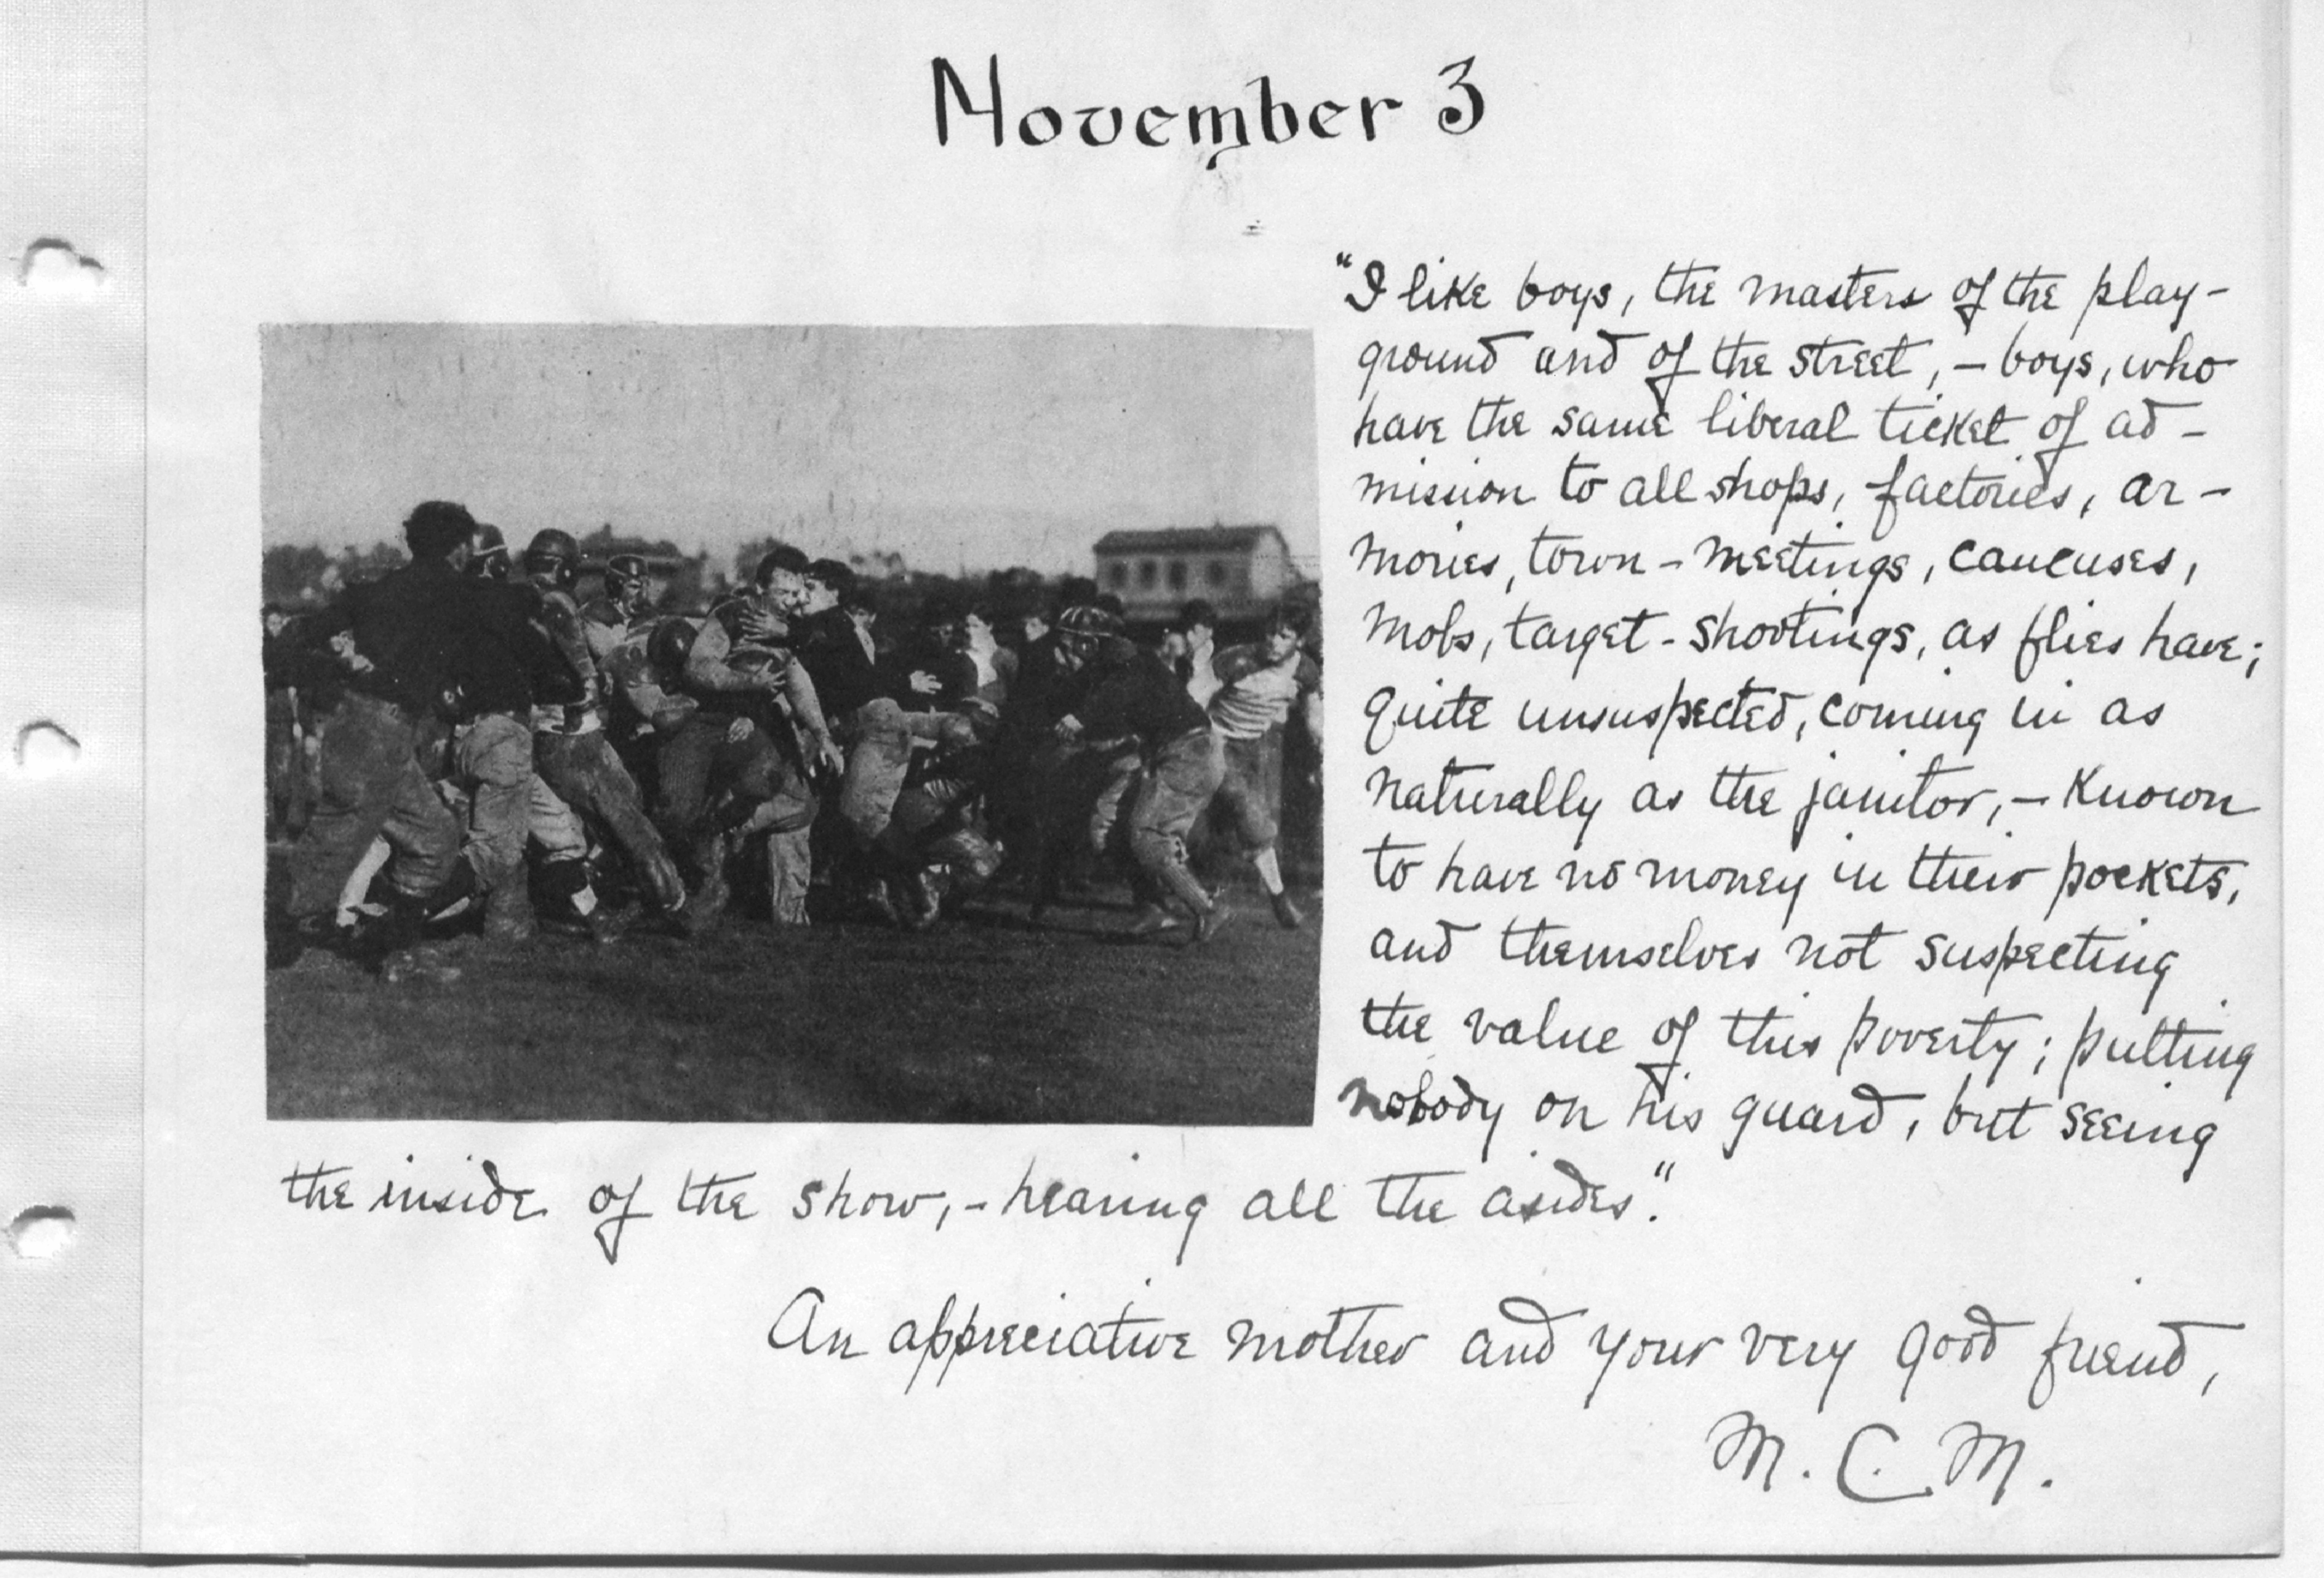 November 3
"I like boys, the masters of the play-
ground and of the street, - boys, who
have the same liberal ticket of ad-
mission to all shops, factories, ar-
mories, town-meetings, caucuses,
mobs, target-shootings, as flies have;
quite unsuspected, coming in as
naturally as the janitor, - known
to have no money in their pockets,
and themselves not suspecting
the value of this poverty; putting
nobody on his guard, but seeing
the inside of the show, - hearing all the asides."
An appreciative mother and your very good friend,
M. C. M.